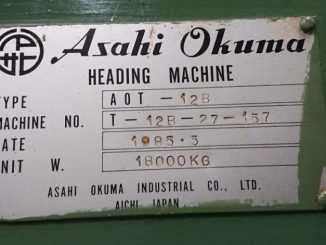 Asahi Okuma
HEADING MACHINE
TYPE AOT-12B
MACHINE NO. T-12B-27-157
DATE 1985.5
UNIT W. 18000KG
ASAHI OKUMA INDUSTRIAL CO., LTD.
AICHI JAPAN